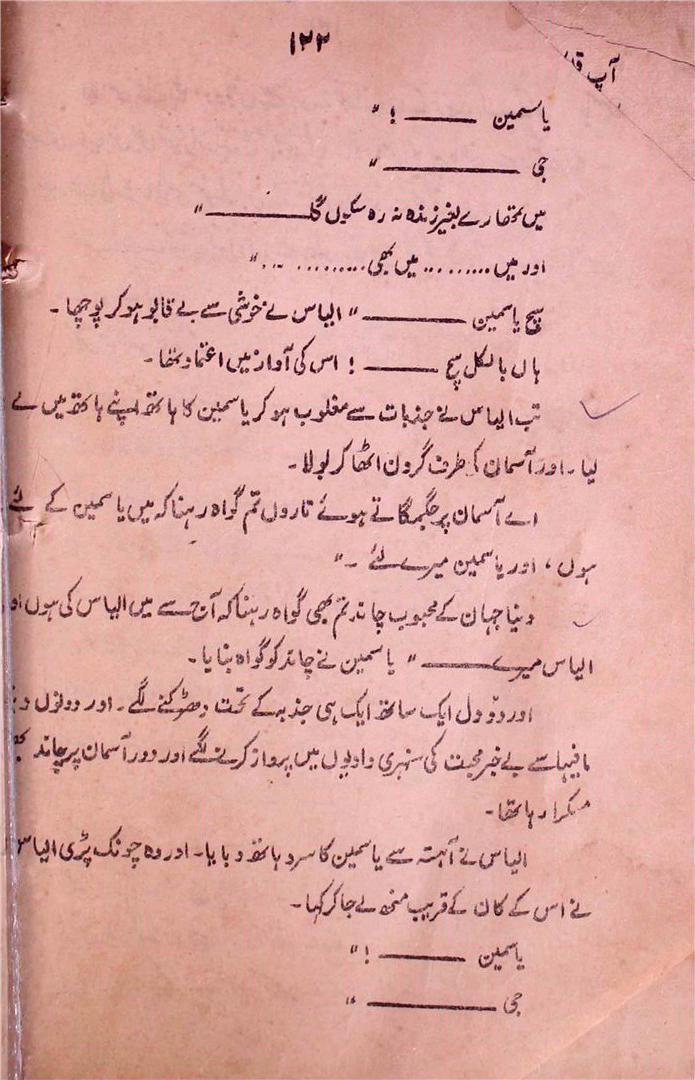 ۱۲۲
آپ
یاسمین ——— ! "
جی ——— "
میں تمھارے بغیر زندہ نہ رہ سکوں گا ——— "
اور میں ......... میں بھی ......... "
سچ یاسمین ——— " الیاس نے خوشی سے بے قابو ہو کر پوچھا۔
ہاں بالکل سچ ——— ! اس کی آواز میں اعتماد تھا۔
تب الیاس نے جذبات سے مغلوب ہو کر یاسمین کا ہاتھ اپنے ہاتھ میں لے
لیا۔ اور آسمان کی طرف گردن اٹھا کر بولا۔
اے آسمان پر جگمگاتے ہوئے تاروں تم گواہ رہنا کہ میں یاسمین کے لئے
ہوں، اور یاسمین میرے لئے ۔ "
دنیا جہان کے محبوب چاند تم بھی گواہ رہنا کہ آج سے میں الیاس کی ہوں
الیاس میرے ——— " یاسمین نے چاند کو گواہ بنایا۔
اور دو دل ایک ساتھ ایک ہی جذبہ کے تحت دھڑکنے لگے۔ اور دونوں
مافیہا سے بے خبر محبت کی سنہری وادیوں میں پرواز کرنے لگے اور دور آسمان پر چاند
مسکرا رہا تھا۔
الیاس نے آہستہ سے یاسمین کا سرد ہاتھ دبایا۔ اور وہ چونک پڑی الیاس
نے اس کے کان کے قریب منھ لے جا کر کہا۔
یاسمین ——— ! "
جی ——— "